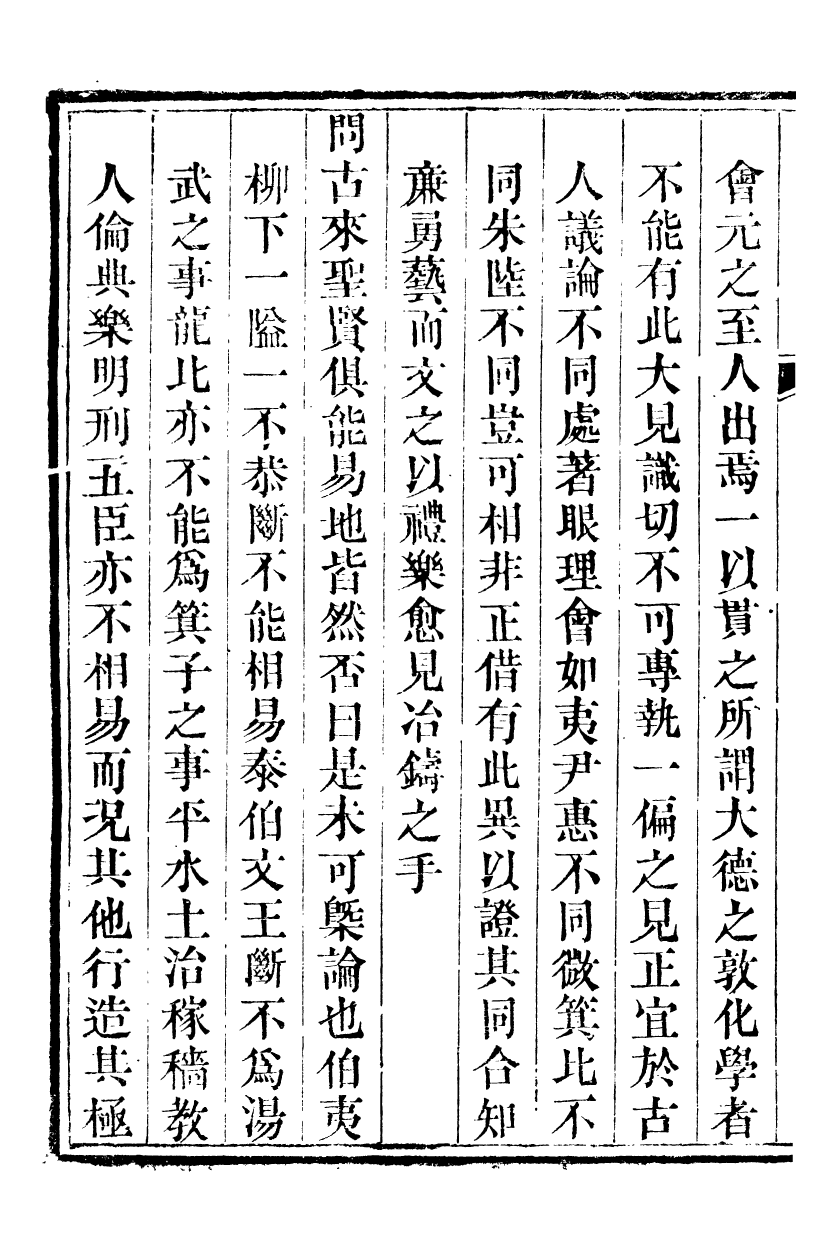 會元之至人出焉一以貫之所謂大德之敦化學者
不能有此大見識切不可專執一偏之見正宜於古
人議論不同處著眼理會如夷尹惠不同微箕比不
同朱陸不同豈可相非正借有此異以證其同合知
亷勇藝而文之以禮樂愈見冶鑄之手
問古來聖賢俱能易地皆然否曰是未可槩論也伯夷
柳下一隘一不恭斷不能相易泰伯文王斷不爲湯
武之事龍比亦不能爲箕子之事平水土治稼穡教
人倫典樂明刑五臣亦不相易而况其他行造其極